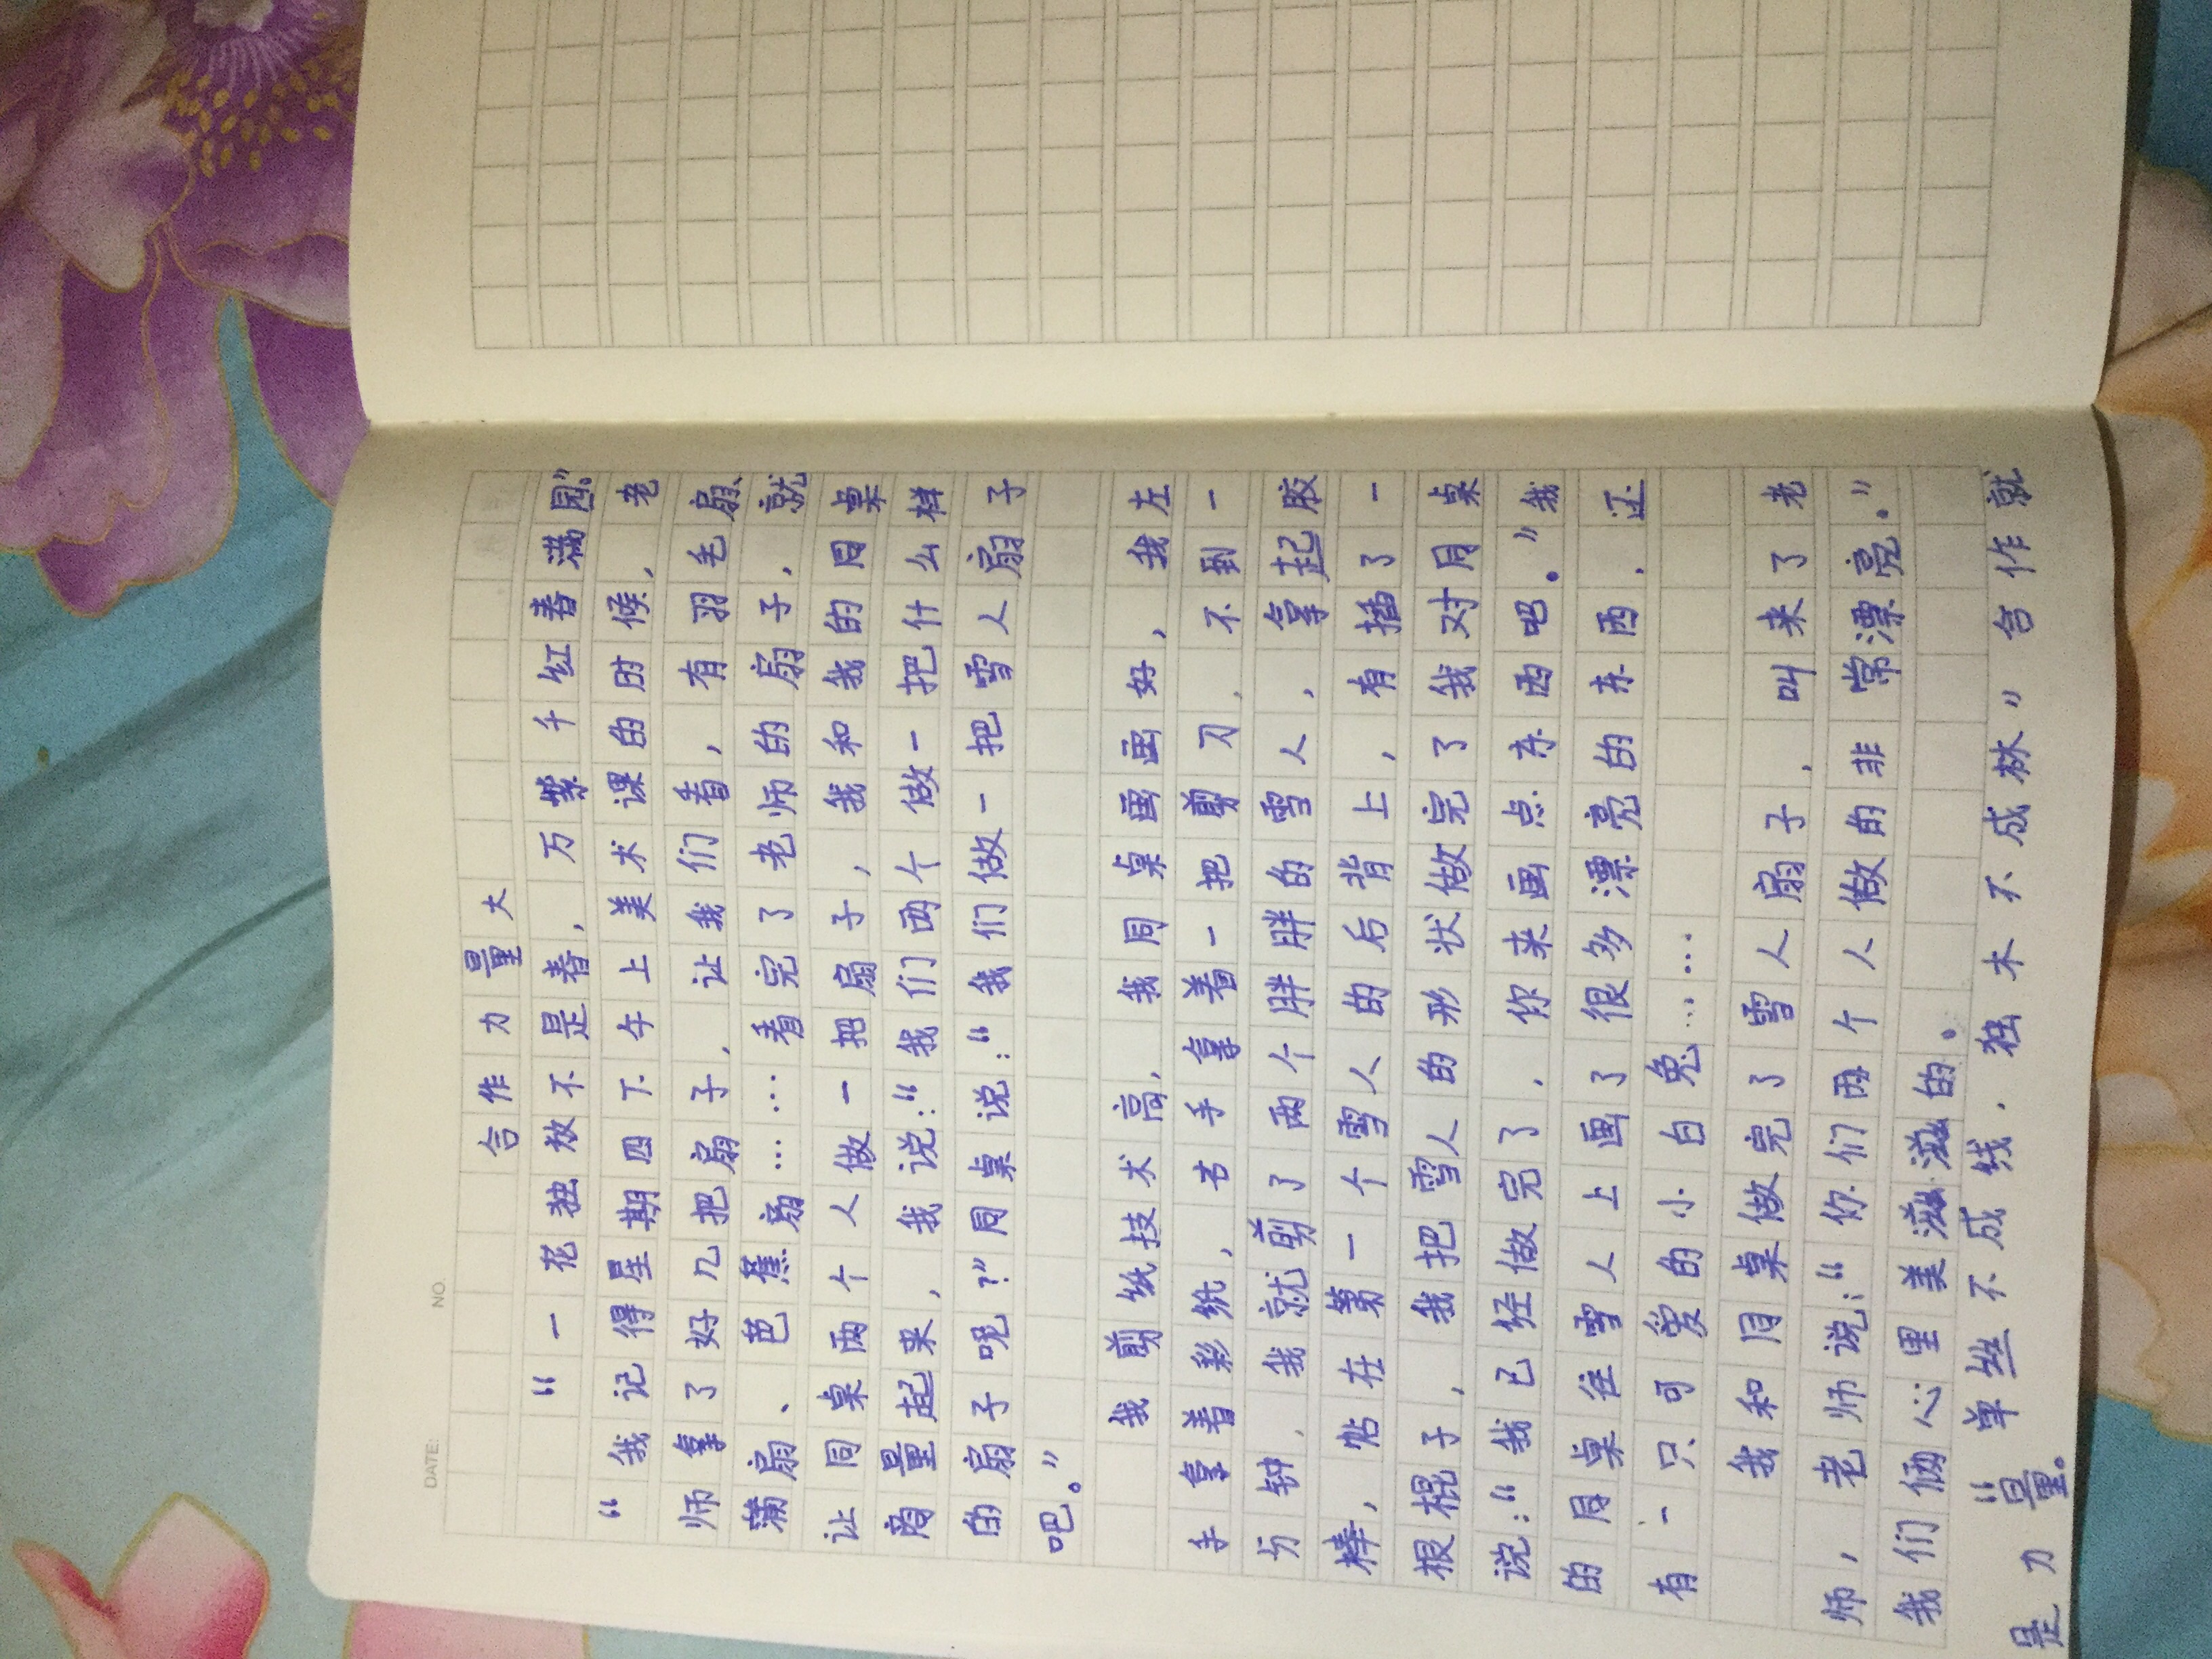 DATE: NO.
合作力量大
“一花独放不是春，万紫千红春满园”
“我记得星期四下午上美术课的时候，老
师拿了好几把扇子，让我们看，有羽毛扇、
蒲扇、芭蕉扇……看完了老师的扇子，就
让同桌两个人做一把扇子，我和我的同桌
商量起来，我说：“我们两个做一把什么样
的扇子呢？”同桌说：“我们做一把雪人扇子
吧。”
我剪纸技术高，我同桌画画好，我左
手拿着彩纸，右手拿着一把剪刀，不到一
分钟，我就剪了两个胖胖的雪人，拿起胶
棒，帖在第一个雪人的后背上，有插了一
根棍子，我把雪人的形状做完了我对同桌
说：“我已经做完了，你来画点东西吧。”我
的同桌往雪人上画了很多漂亮的东西，还
有一只可爱的小白兔……
我和同桌做完了雪人扇子，叫来了老
师，老师说：“你们两个人做的非常漂亮。”
我们俩心里美滋滋的。
“单丝不成线，独木不成林”合作就
是力量。